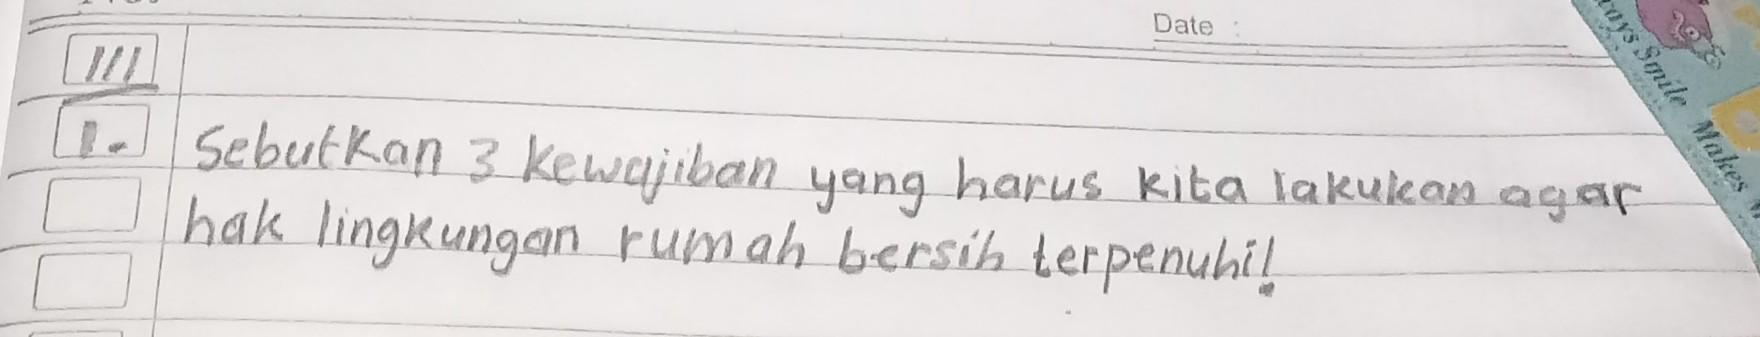 Date :
III
1. Sebutkan 3 kewajiban yang harus kita lakukan agar
hak lingkungan rumah bersih terpenuhi!
ays Smile Makes